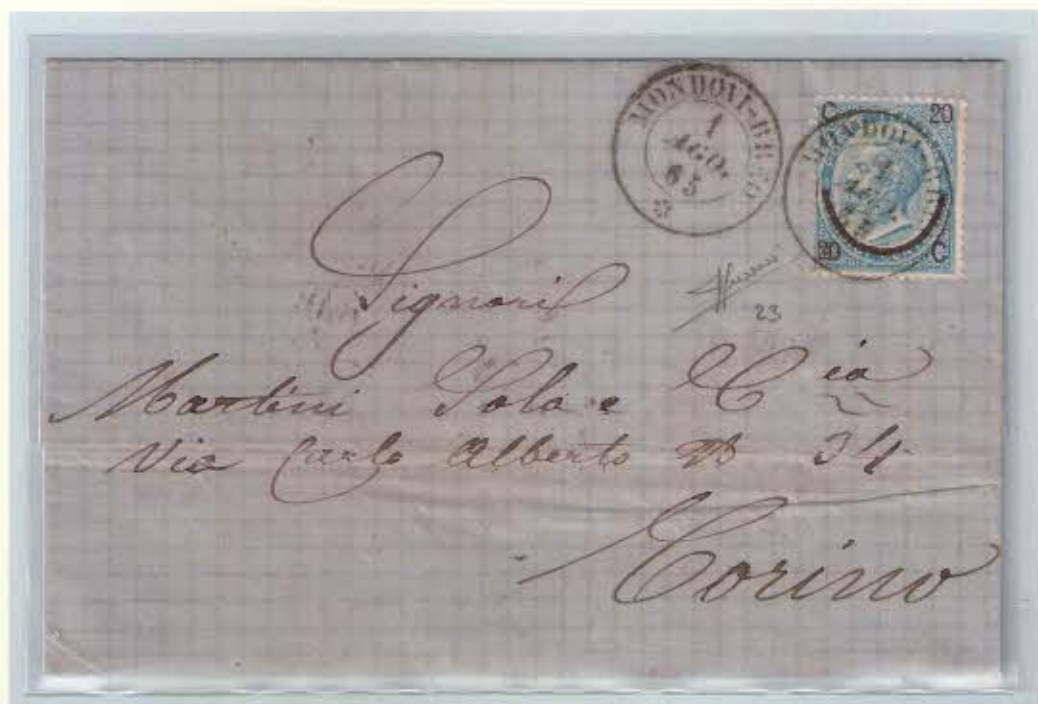 MONDOVI-BREO
1
AGO.
65
C 20
20 C
23
Signori
Martini Sola e Cia
Via Carlo Alberto N 34
Torino